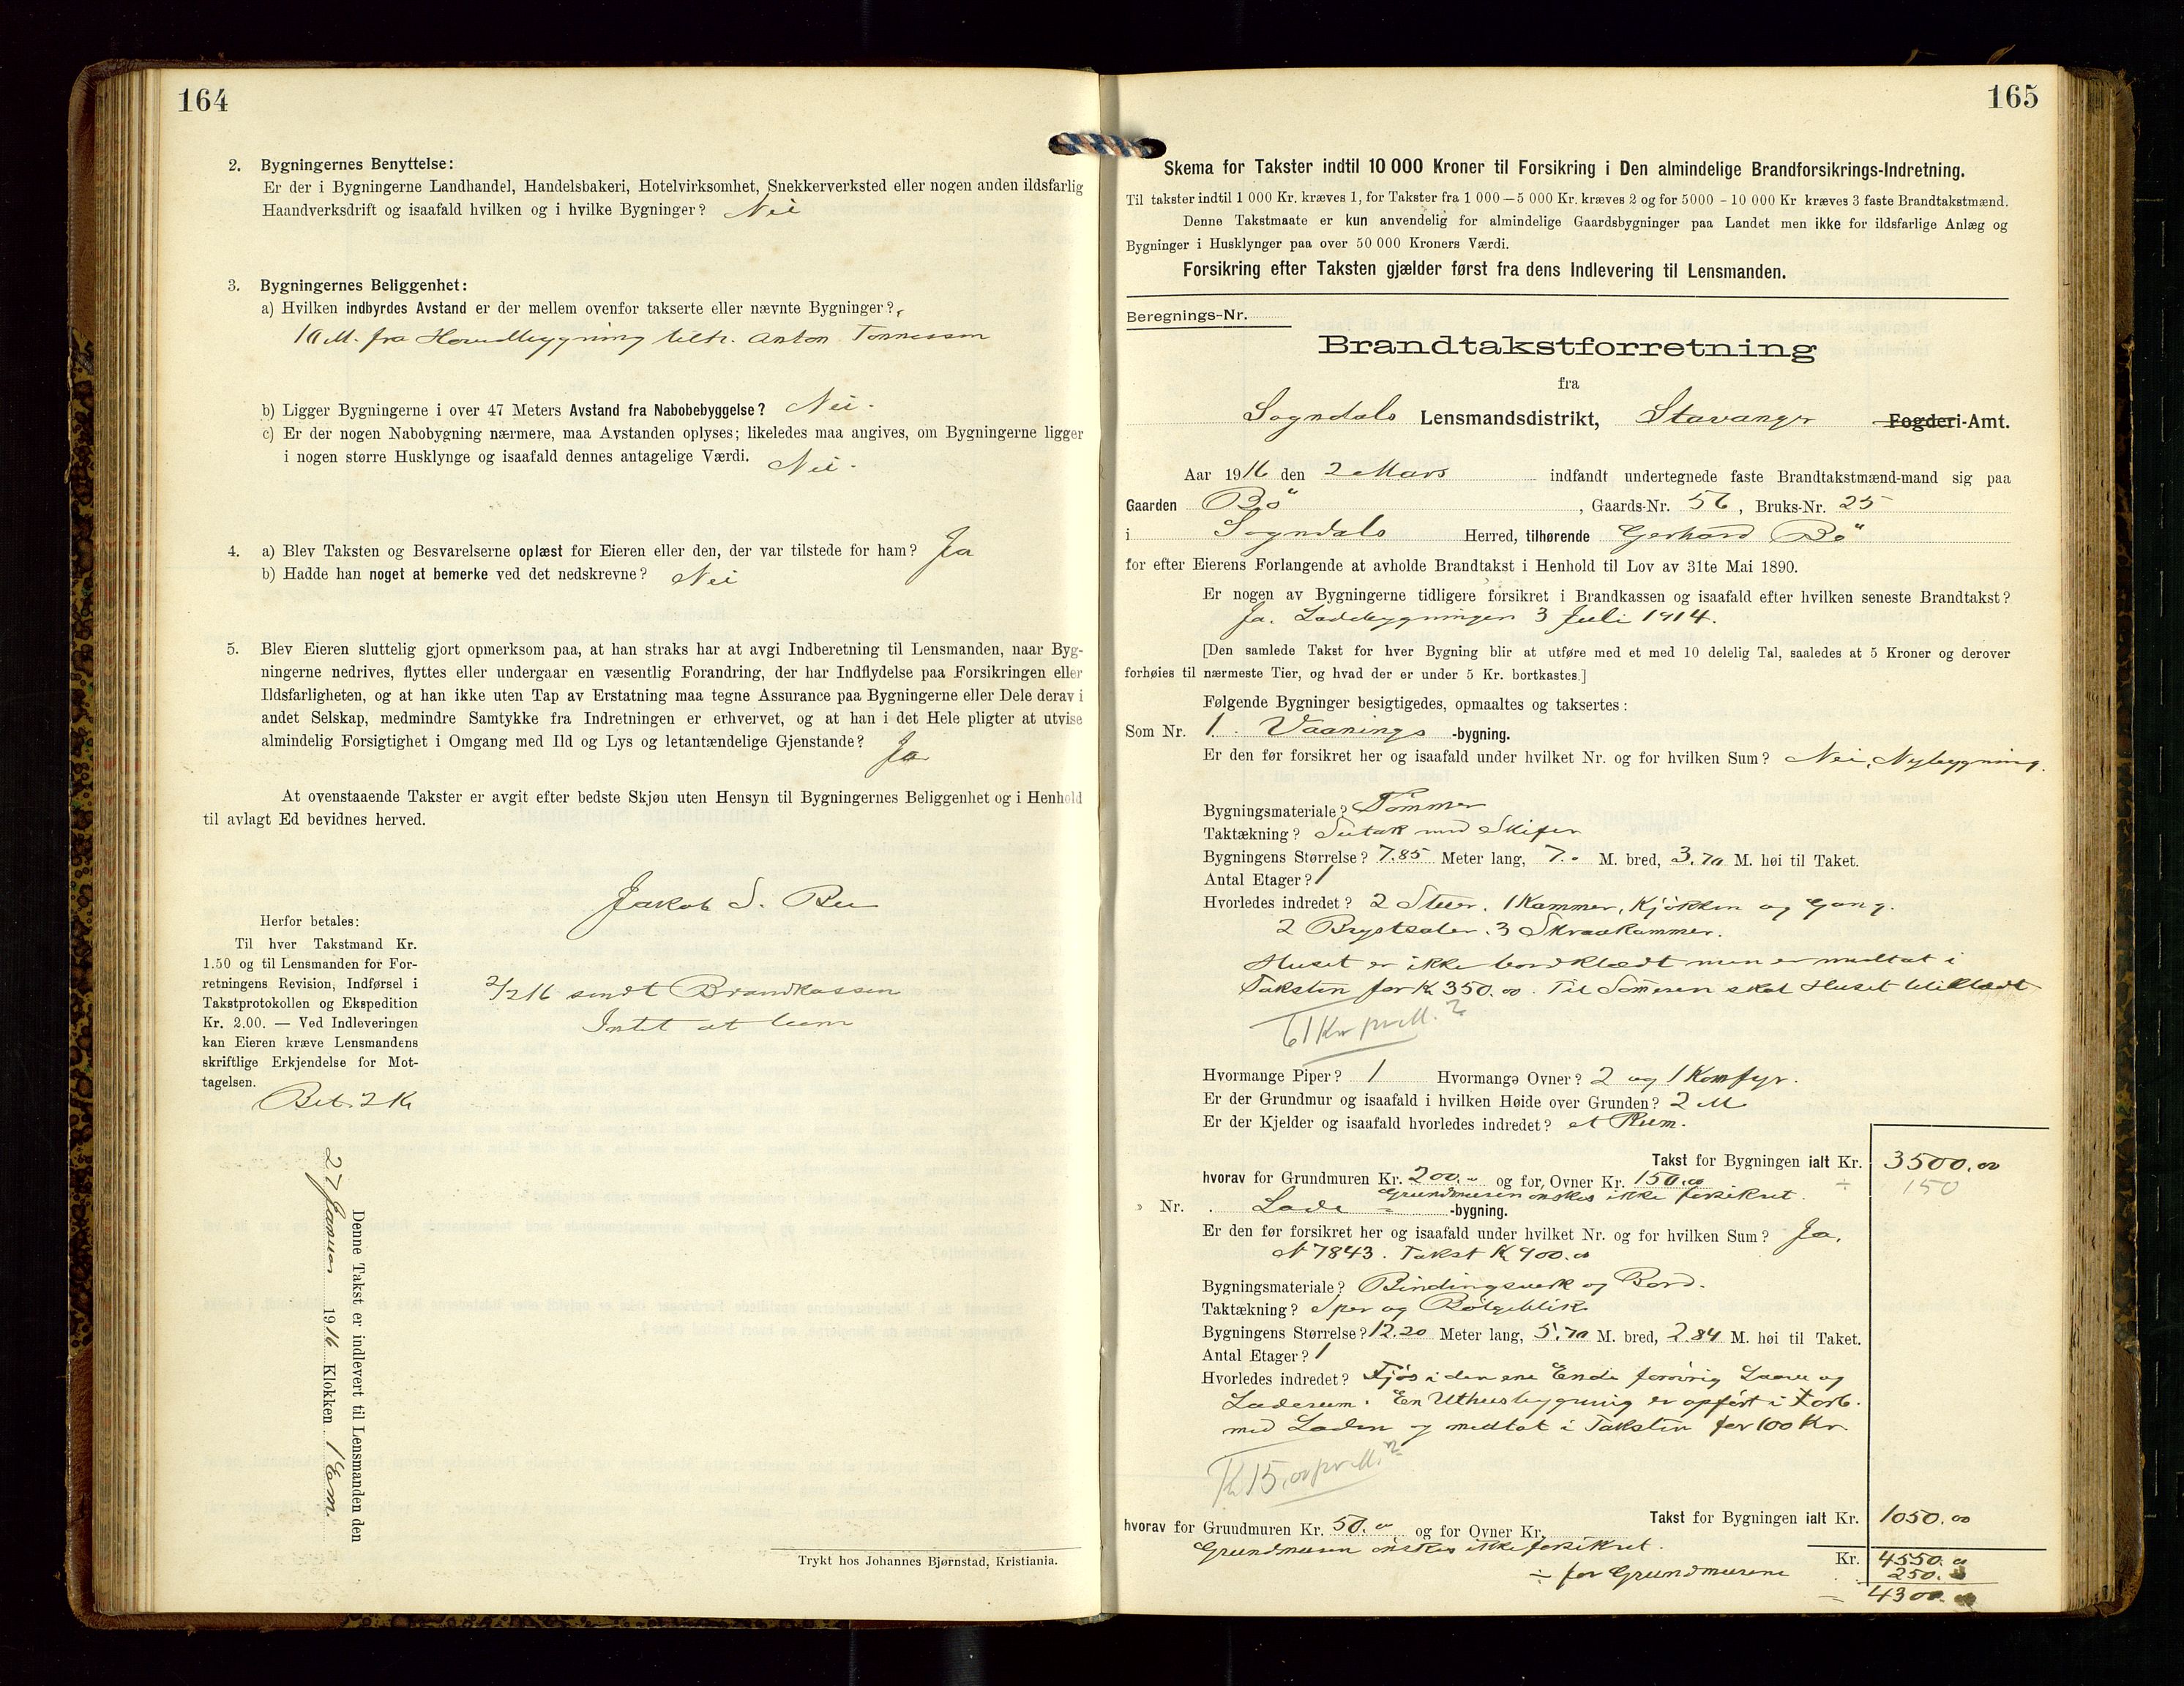 164
2. Bygningernes Benyttelse:
Er der i Bygningerne Landhandel, Handelsbakeri, Hotelvirksomhet, Snekkerverksted eller nogen anden ildsfarlig
Haandverksdrift og isaafald hvilken og i hvilke Bygninger? Nei
3. Bygningernes Beliggenhet:
a) Hvilken indbyrdes Avstand er der mellem ovenfor takserte eller nævnte Bygninger?
10 M. fra Hovedbygning tilh. Anton Tönnessen
b) Ligger Bygningerne i over 47 Meters Avstand fra Nabobebyggelse? Nei.
c) Er der nogen Nabobygning nærmere, maa Avstanden oplyses; likeledes maa angives, om Bygningerne ligger
i nogen større Husklynge og isaafald dennes antagelige Værdi. Nei.
4. a) Blev Taksten og Besvarelserne oplæst for Eieren eller den, der var tilstede for ham? Ja
b) Hadde han noget at bemerke ved det nedskrevne? Nei
5. Blev Eieren sluttelig gjort opmerksom paa, at han straks har at avgi Indberetning til Lensmanden, naar Byg-
ningerne nedrives, flyttes eller undergaar en væsentlig Forandring, der har Indflydelse paa Forsikringen eller
Ildsfarligheten, og at han ikke uten Tap av Erstatning maa tegne Assurance paa Bygningerne eller Dele derav i
andet Selskap, medmindre Samtykke fra Indretningen er erhvervet, og at han i det Hele pligter at utvise
almindelig Forsigtighet i Omgang med Ild og Lys og letantændelige Gjenstande? Ja
At ovenstaaende Takster er avgit efter bedste Skjøn uten Hensyn til Bygningernes Beliggenhet og i Henhold
til avlagt Ed bevidnes herved.
Jakob S.
Herfor betales:
Til hver Takstmand Kr.
1.50 og til Lensmanden for For-
retningens Revision, Indførsel i
Takstprotokollen og Ekspedition
Kr. 2.00. — Ved Indleveringen
kan Eieren kræve Lensmandens
skriftlige Erkjendelse for Mot-
tagelsen.
sendt Brandkassen
Intet at bem
Bet. 2 Kr
Denne Takst er indlevert til Lensmanden den
27 Januar 1916 Klokken 1 Em.
Trykt hos Johannes Bjørnstad, Kristiania.
165
Skema for Takster indtil 10 000 Kroner til Forsikring i Den almindelige Brandforsikrings-Indretning.
Til takster indtil 1 000 Kr. kræves 1, for Takster fra 1 000 — 5 000 Kr. kræves 2 og for 5000 - 10 000 Kr kræves 3 faste Brandtakstmænd.
Denne Takstmaate er kun anvendelig for almindelige Gaardsbygninger paa Landet men ikke for ildsfarlige Anlæg og
Bygninger i Husklynger paa over 50 000 Kroners Værdi.
Forsikring efter Taksten gjælder først fra dens Indlevering til Lensmanden.
Beregnings-Nr.
Brandtakstforretning
fra
Sogndals Lensmandsdistrikt, Stavanger Fogderi-Amt.
Aar 1916 den 2 Mars indfandt undertegnede faste Brandtakstmænd-mand sig paa
Gaarden Bö, Gaards-Nr. 56, Bruks-Nr. 25
i Sogndals Herred, tilhørende Gerhard Bö
for efter Eierens Forlangende at avholde Brandtakst i Henhold til Lov av 31te Mai 1890.
Er nogen av Bygningerne tidligere forsikret i Brandkassen og isaafald efter hvilken seneste Brandtakst?
Ja. Ladebygningen 3 Juli 1914.
[Den samlede Takst for hver Bygning blir at utføre med et med 10 delelig Tal, saaledes at 5 Kroner og derover
forhøies til nærmeste Tier, og hvad der er under 5 Kr. bortkastes.]
Følgende Bygninger besigtigedes, opmaaltes og taksertes:
Som Nr. 1. Vaanings -bygning.
Er den før forsikret her og isaafald under hvilket Nr. og for hvilken Sum? Nei, Nybygning.
Bygningsmateriale? Tömmer
Taktækning? Sutak med Skifer
Bygningens Størrelse? 7.85 Meter lang, 7.- M. bred, 3.70 M. høi til Taket.
Antal Etager? 1
Hvorledes indredet? 2 Stuer. 1 Kammer, Kjökken og Gang.
2 Brystsaler. 3 Skraakammer.
Huset er ikke bordklædt men er medtat i
Taksten for Kr 350.00. Til Sömeren skal Huset bli klædt
61 Kr pr M.²
Hvormange Piper? 1 Hvormange Ovner? 2 og 1 Komfyr.
Er der Grundmur og isaafald i hvilken Høide over Grunden? 2 M
Er der Kjelder og isaafald hvorledes indredet? et Rum.
Takst for Bygningen ialt Kr. 3500.00
hvorav for Grundmuren Kr. 200.- og for Ovner Kr. 150.00 ÷ 150
Grundmuren önskes ikke forsikret.
Nr. Lade -bygning.
Er den før forsikret her og isaafald under hvilket Nr. og for hvilken Sum? Ja.
N 7843. Takst Kr 900.00
Bygningsmateriale? Bindingsverk og Bord.
Taktækning? Sper og Bölgeblik
Bygningens Størrelse? 12.20 Meter lang, 5.70 M. bred, 2.84 M. høi til Taket.
Antal Etager? 1
Hvorledes indredet? Fjös i den ene Ende forövrig Laave og
Laderum. En Uthusbygning er opfört i Forb.
med Laden og medtat i Taksten for 100 Kr.
Kr 15.00 pr M.²
Takst for Bygningen ialt Kr. 1050.00
hvorav for Grundmuren Kr. 50.00 og for Ovner Kr.
Grundmuren önskes ikke forsikret.
Kr. 4550.00
÷ for Grundmurene 250.
= 4300.00